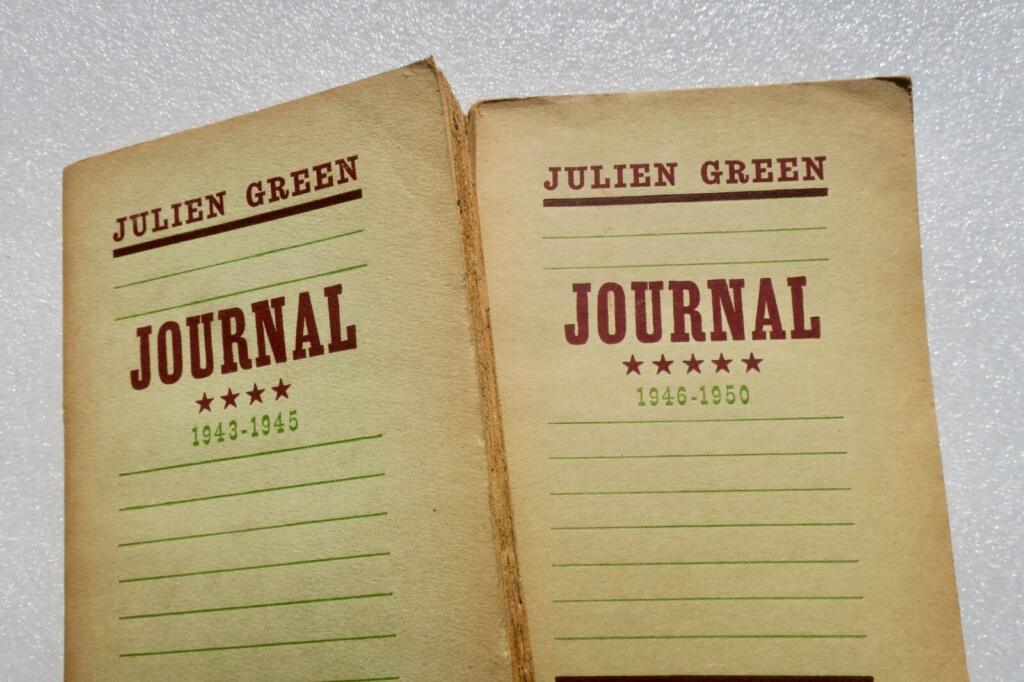 JULIEN GREEN
JOURNAL
★★★★
1943-1945
JULIEN GREEN
JOURNAL
★★★★★
1946-1950